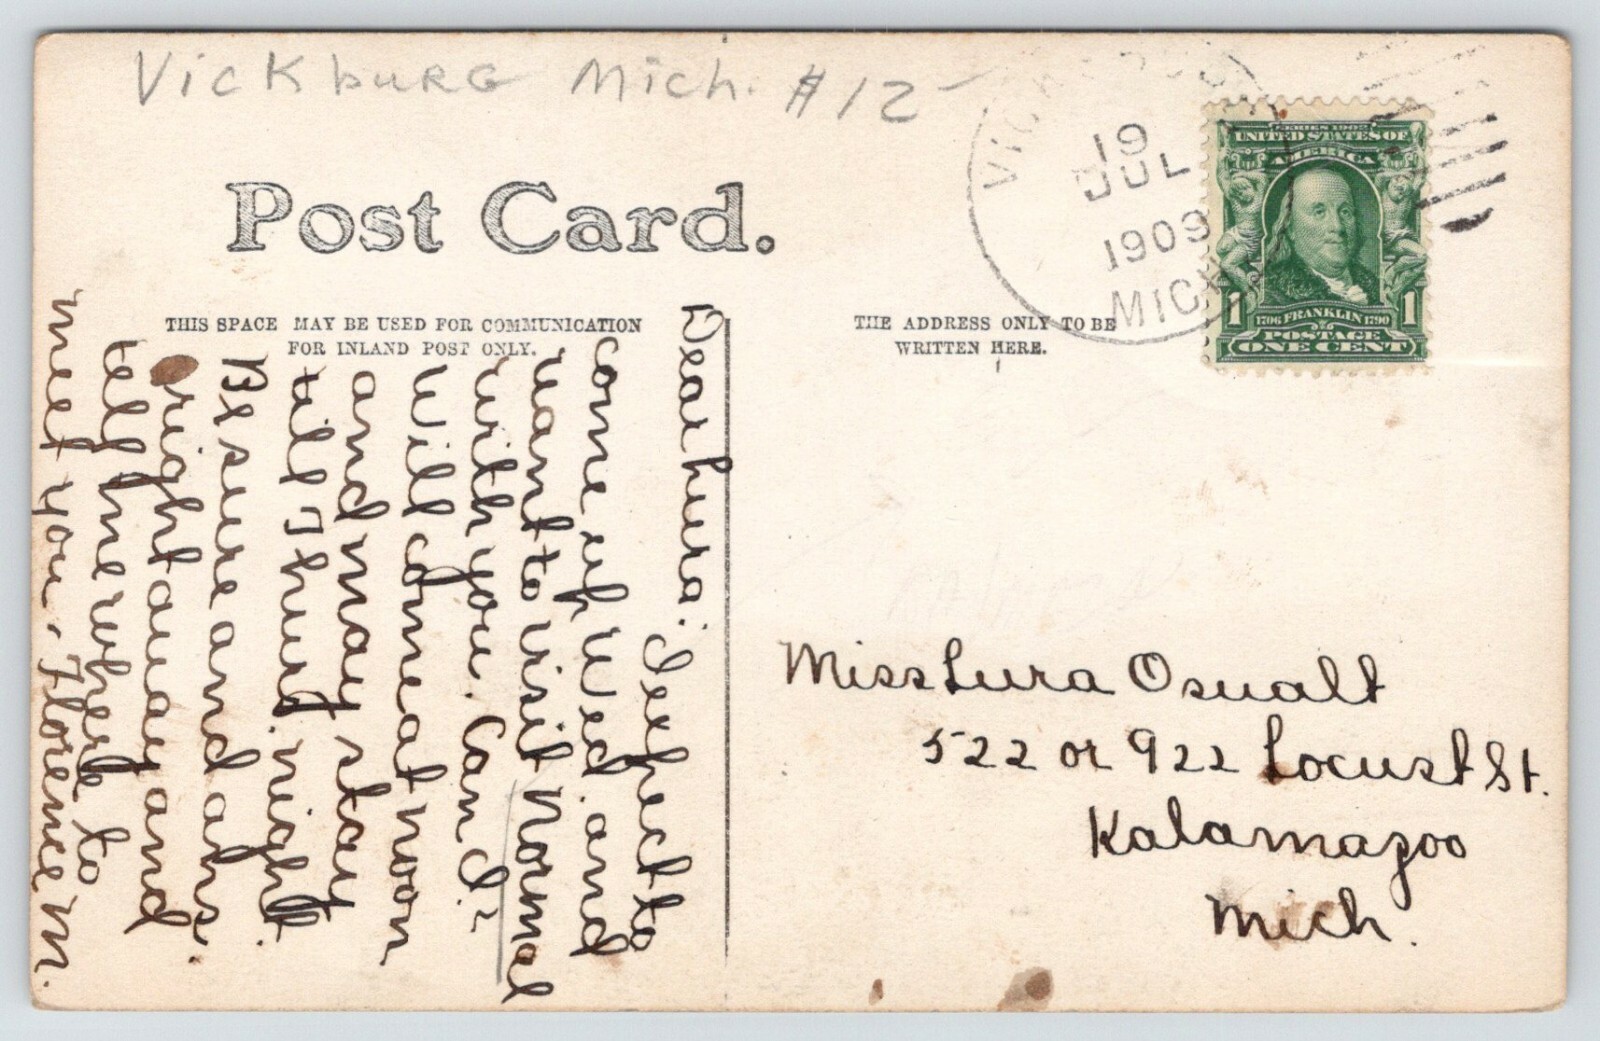 Vickburg Mich. #12-
Post Card.
THIS SPACE MAY BE USED FOR COMMUNICATION
FOR INLAND POST ONLY.
THE ADDRESS ONLY TO BE
WRITTEN HERE.
19
JUL
1909
MICH
SERIES 1902
UNITED STATES OF
AMERICA
1 1
1706 FRANKLIN 1790
POSTAGE
ONE CENT
Dear Lura: I expect to
come up Wed. and
want to visit Normal
with you. Can I?
Will come at noon
and may stay
till Thurs. night.
Be sure and ans.
right away and
tell me where to
meet you. Florence M.
Miss Lura Osualt
522 or 922 Locust St.
Kalamazoo
Mich.